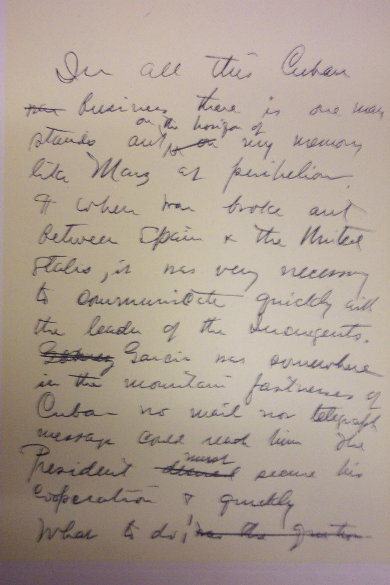 In all this Cuban
business there is one man
on the horizon of
stands out my memory
like Mars at perihelion.
¶ When war broke out
between Spain & the United
States, it was very necessary
to communicate quickly with
the leader of the insurgents.
Garcia was somewhere
in the mountain fastnesses of
Cuba no mail nor telegraph
message could reach him The
must
President secure his
cooperation & quickly
What to do! was the question